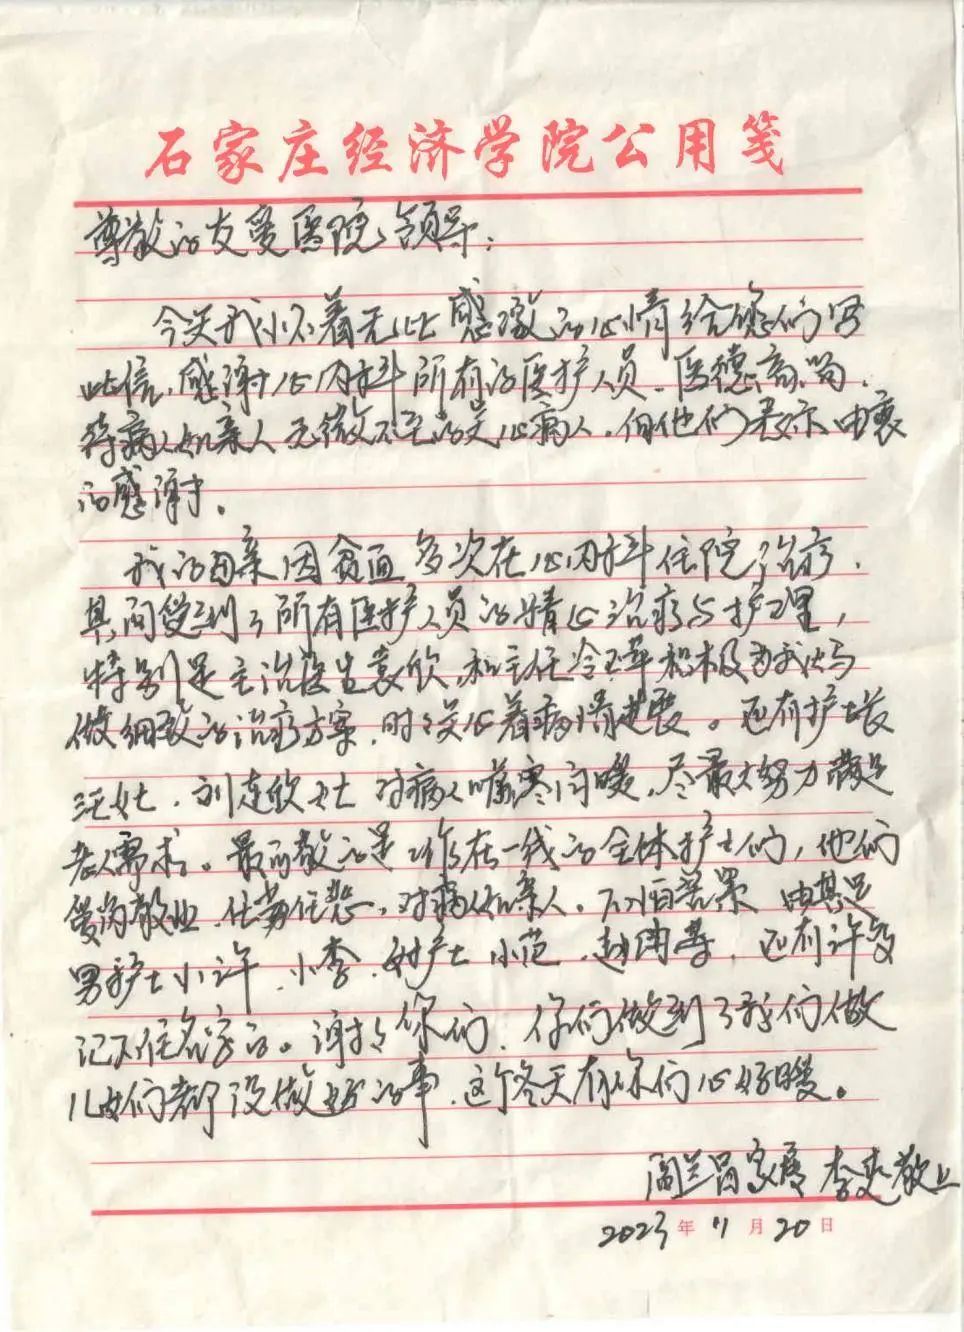 石家庄经济学院公用笺
尊敬的友爱医院领导：
今天我怀着无比感激的心情给您们写
此信，感谢心内科所有的医护人员，医德高尚，
待病人如亲人无微不至的关心病人，向他们表示由衷
的感谢。
我的母亲因贫血多次在心内科住院治疗，
其间受到了所有医护人员的精心治疗与护理，
特别是主治医生袁欣，和主任冷苹积极为我妈
做细致的治疗方案，时时关心着病情进展。还有护士长
汪姓，刘连欣护士对病人嘘寒问暖，尽最大努力满足
老人需求。最可敬的是工作在一线的全体护士们，他们
爱岗敬业，任劳任怨，对病人如亲人，不怕苦累 尤其是
男护士小许，小李，女护士小范，赵 还有许多
记不住名字的。谢谢你们，你们做到了我们做
儿女们都没做好的事，这个冬天有你们心好暖。
阎兰昌家属 李爽敬上
2023年11月20日